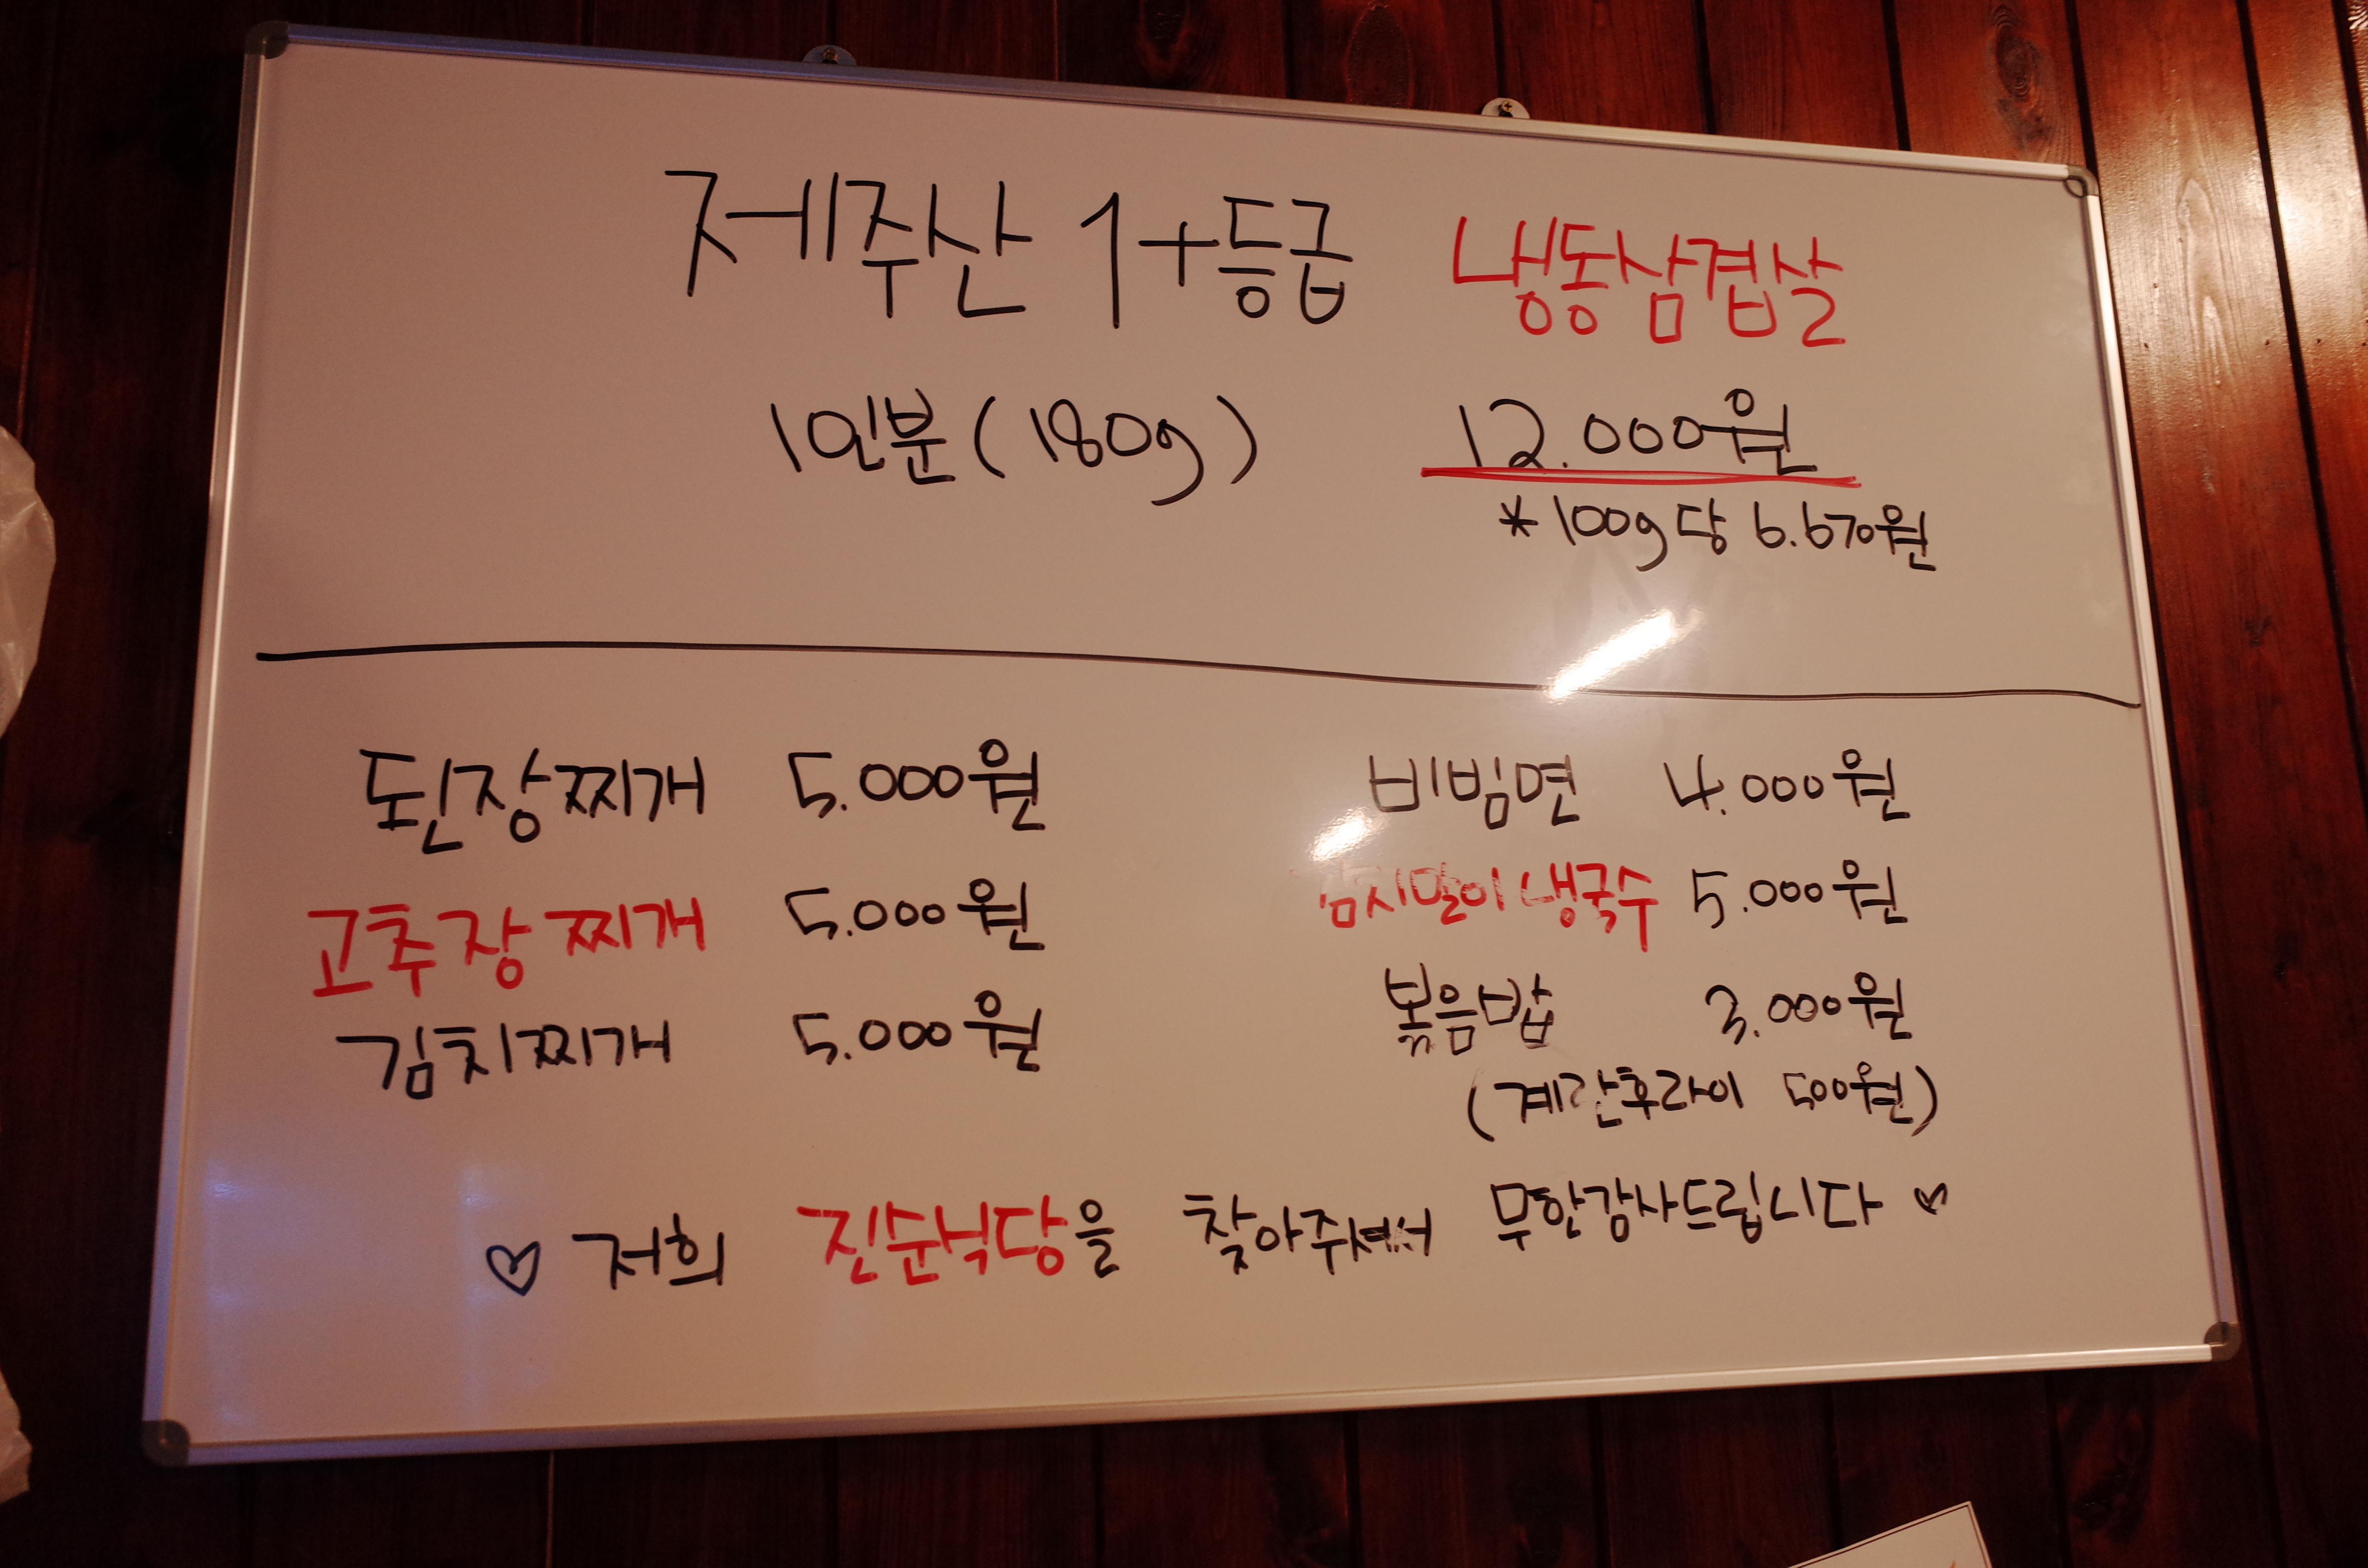 제주산 1+등급 냉동삼겹살
1인분(180g) 12.000원
*100g당 6.670원
된장찌개 5.000원 비빔면 4.000원
고추장찌개 5.000원 김치말이 냉국수 5.000원
김치찌개 5.000원 볶음밥 3.000원
(계란후라이 500원)
♡ 저희 진순식당을 찾아주셔서 무한감사드립니다 ♡